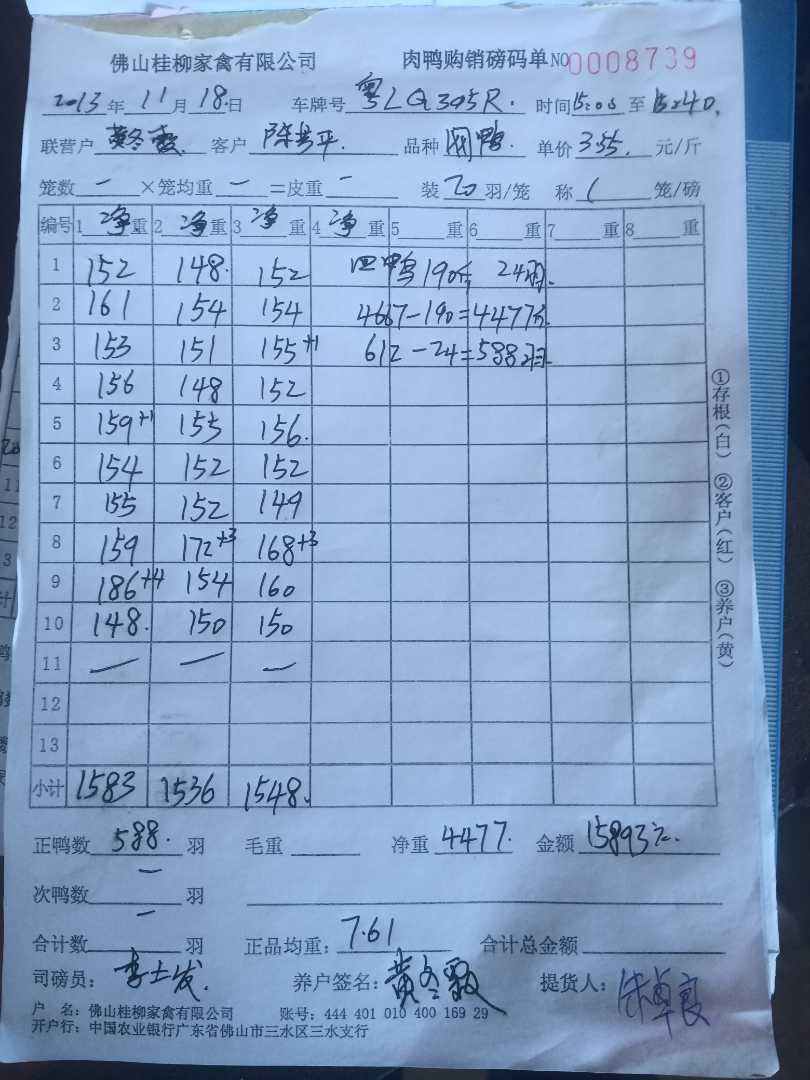 佛山桂柳家禽有限公司 肉鸭购销磅码单 NO 0008739
2013年11月18日 车牌号 粤LQ395R. 时间15:00至15:40.
联营户 黄冬霞. 客户 品种 鸭. 单价 3.55. 元/斤
笼数 一 ×笼均重 一 =皮重 一 装 20 羽/笼 称 1 笼/磅
编号 1 净重 2 净重 3 净重 4 净重 5 重 6 重 7 重 8 重
1 152 148. 152 鸭190斤 24羽.
2 161 154 154 4667-190=4477斤
3 153 151 155+1 612-24=588羽.
4 156 148 152
5 159+1 155 156.
6 154 152 152
7 155 152 149
8 159 172+3 168+3
9 186+4 154 160
10 148. 150 150
11 一 一 一
12
13
小计 1583 1536 1548.
正鸭数 588. 羽 毛重 净重 4477. 金额 15893元.
次鸭数 一 羽
合计数 一 羽 正品均重: 7.61 合计总金额
司磅员: 李士发. 养户签名: 黄冬霞 提货人:
户 名: 佛山桂柳家禽有限公司 账号: 444 401 010 400 169 29
开户行: 中国农业银行广东省佛山市三水区三水支行
①存根(白) ②客户(红) ③养户(黄)